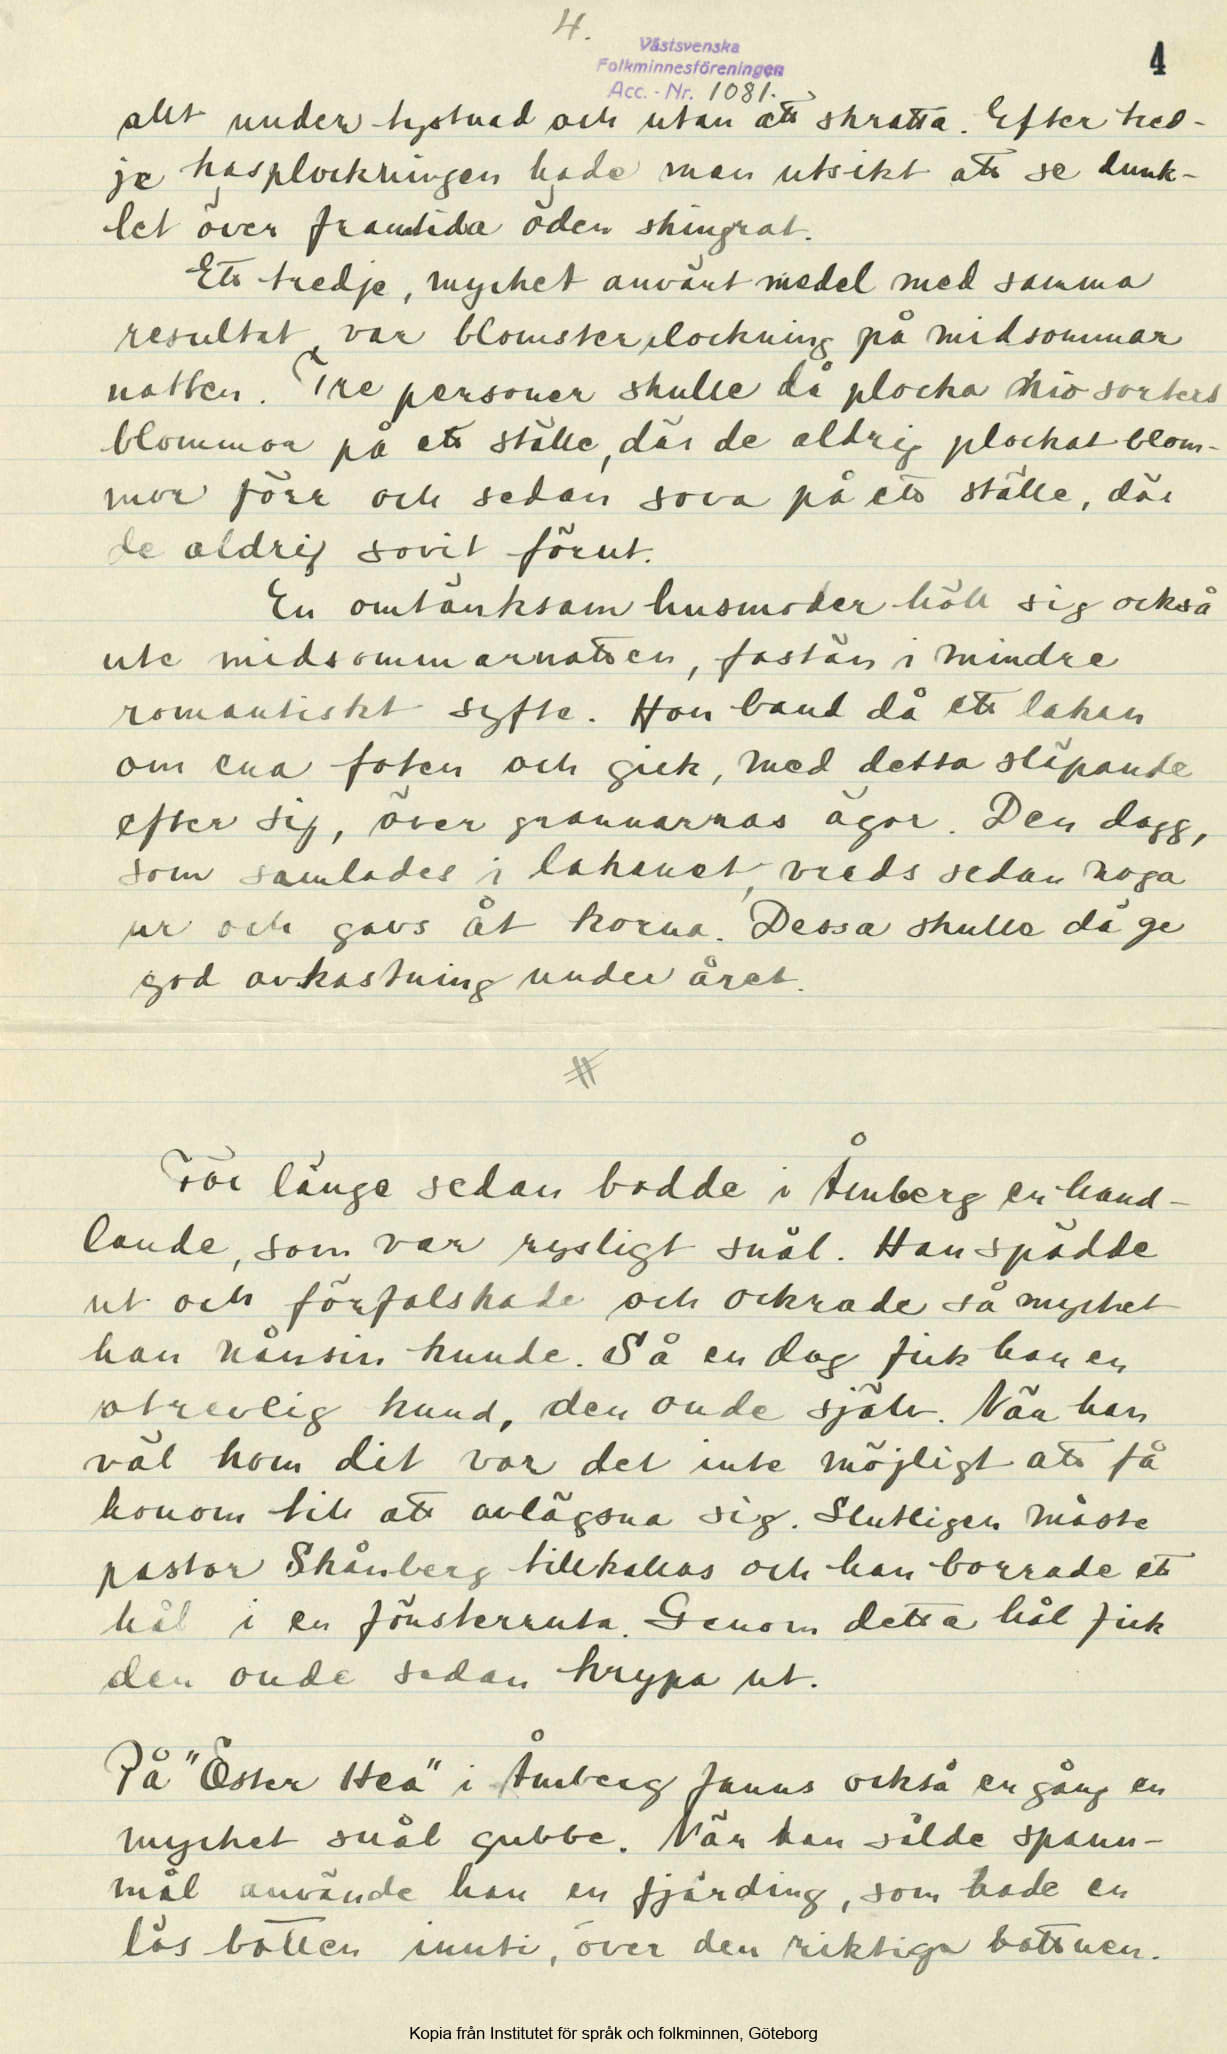 4.
Västsvenska
Folkminnesföreningen
Acc. - Nr. 1081.
4
allt under tystnad och utan att skratta. Efter tred-
je hasplockningen hade man utsikt att se dunk-
let över framtida öden skingrat.
Ett tredje, mycket använt medel med samma
resultat, var blomsterplockning på midsommar
natten. Tre personer skulle då plocka nio sorters
blommor på ett ställe, där de aldrig plockat blom-
mor förr och sedan sova på ett ställe, där
de aldrig sovit förut.
En omtänksam husmoder höll sig också
ute midsommarnatten, fastän i mindre
romantiskt syfte. Hon band då ett lakan
om ena foten och gick, med detta släpande
efter sig, över grannarnas ägor. Den dagg,
som samlades i lakanet, vreds sedan noga
ur och gavs åt korna. Dessa skulle då ge
god avkastning under året.
#
För länge sedan bodde i Åmberg en hand-
lande, som var rysligt snål. Han spädde
ut och förfalskade och ockrade så mycket
han nånsin kunde. Så en dag fick han en
otrevlig kund, den onde själv. När han
väl kom dit var det inte möjligt att få
honom till att avlägsna sig. Slutligen måste
pastor Skånberg tillkallas och han borrade ett
hål i en fönsterruta. Genom detta hål fick
den onde sedan krypa ut.
På "Öster Hea" i Åmberg fanns också en gång en
mycket snål gubbe. När han sålde spann-
mål använde han en fjärding, som hade en
lös botten inuti, över den riktiga bottnen.
Kopia från Institutet för språk och folkminnen, Göteborg